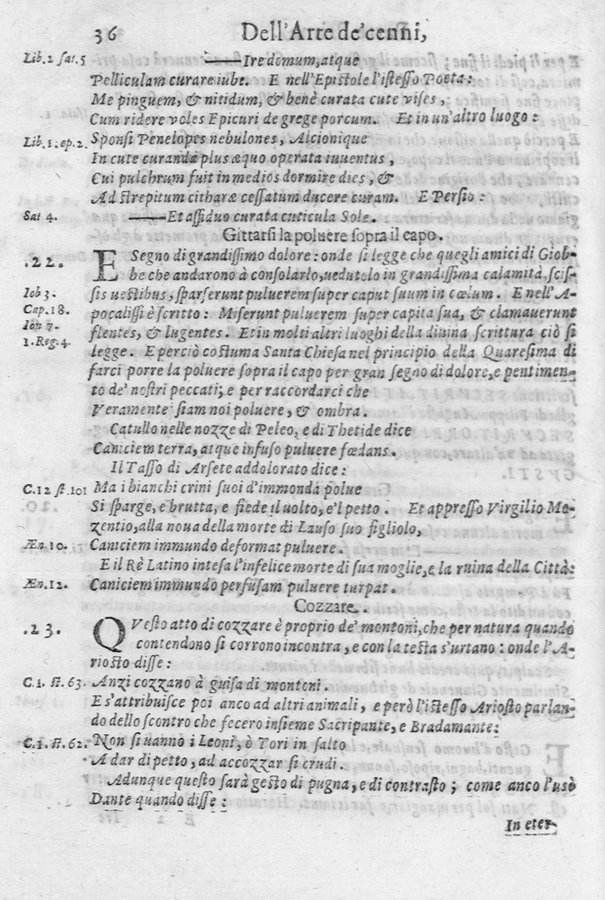 36 Dell'Arte de'cenni,
Lib. 2 sat. 5 ——Ire domum, atque
Pelliculam curare iube. E nell'Epistole l'istesso Poeta:
Me pinguem, & nitidum, & benè curata cute vises,
Cum ridere voles Epicuri de grege porcum. Et in un'altro luogo:
Lib. 1. ep. 2. Sponsi Penelopes nebulones, Alcionique
In cute curanda plus æquo operata iuuentus,
Cui pulchrum fuit in medios dormire dies, &
Ad strepitum citharæ cessatum ducere curam. E Persio:
Sat 4. ——Et assiduo curata cuticula Sole.
Gittarsi la poluere sopra il capo.
.22. E Segno di grandissimo dolore: onde si legge che quegli amici di Giob-
be che andarono à consolarlo, uedutolo in grandissima calamità, scis-
Iob 3. sis uestibus, sparserunt puluerem super caput suum in cælum. E nell'A-
Cap. 18. pocalissi è scritto: Miserunt puluerem super capita sua, & clamauerunt
Ion 7. flentes, & lugentes. Et in molti altri luoghi della diuina scrittura ciò si
1. Reg. 4. legge. E perciò costuma Santa Chiesa nel principio della Quaresima di
farci porre la poluere sopra il capo per gran segno di dolore, e pentimen-
to de' nostri peccati; e per raccordarci che
Veramente siam noi poluere, & ombra.
Catullo nelle nozze di Peleo, e di Thetide dice
Caniciem terra, atque infuso puluere fædans.
Il Tasso di Arsete addolorato dice:
C. 12 st. 101 Ma i bianchi crini suoi d'immonda polue
Si sparge, e brutta, e fiede il uolto, e'l petto. Et appresso Virgilio Me-
zentio, alla noua della morte di Lauso suo figliolo,
Æn 10. Caniciem immundo deformat puluere.
E il Rè Latino intesa l'infelice morte di sua moglie, e la ruina della Città:
Æn. 12. Caniciem immundo perfusam puluere turpat.
Cozzare.
.23. QVesto atto di cozzare è proprio de' montoni, che per natura quando
contendono si corrono incontra, e con la testa s'urtano: onde l'A-
riosto disse:
C. 1. st. 63. Anzi cozzano à guisa di montoni.
E s'attribuisce poi anco ad altri animali, e però l'istesso Ariosto parlan-
do dello scontro che fecero insieme Sacripante, e Bradamante:
C. 1. st. 62. Non si uanno i Leoni, ò Tori in salto
A dar di petto, ad accozzar si crudi.
Adunque questo sarà gesto di pugna, e di contrasto; come anco l'usò
Dante quando disse:
In eter